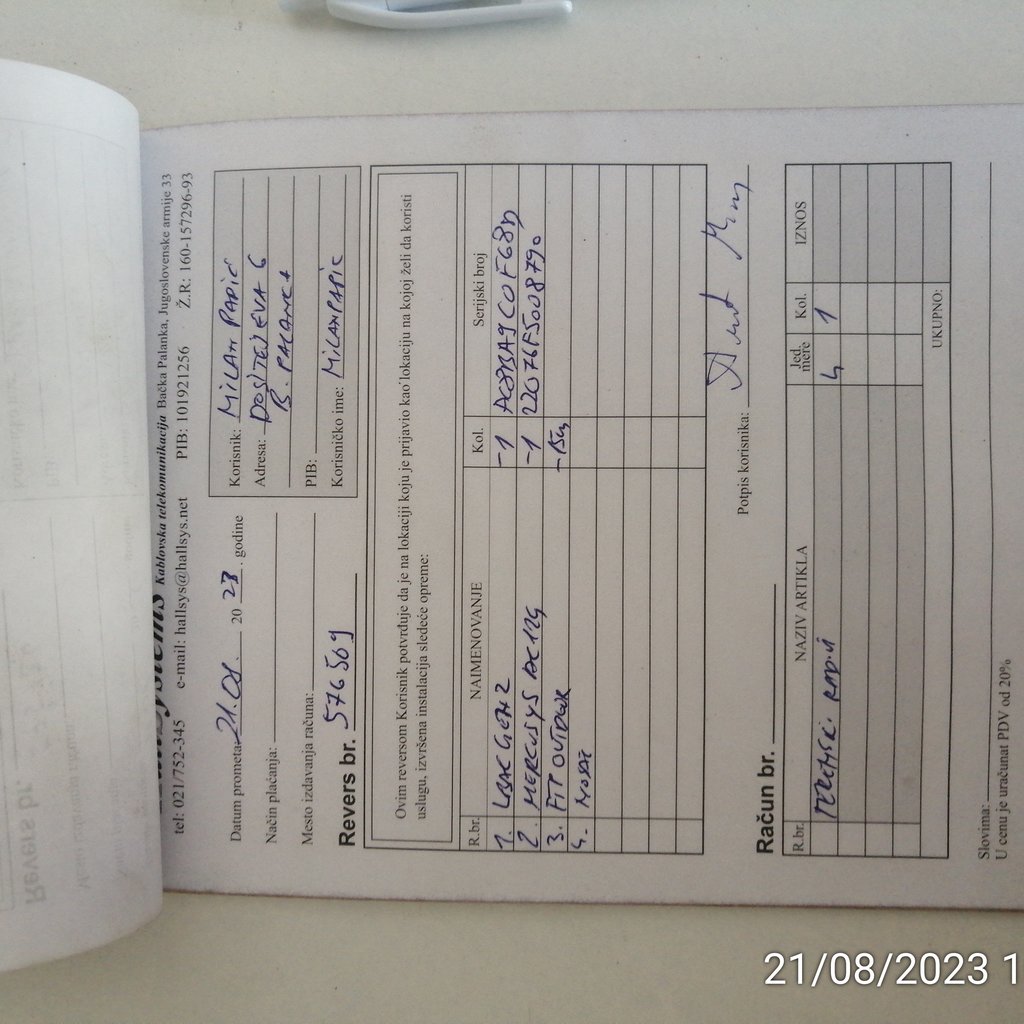 Kablovska telekomunikacija Bačka Palanka, Jugoslovenske armije 33
tel: 021/752-345 e-mail: hallsys@hallsys.net PIB: 101921256 Ž.R: 160-157296-93
Datum prometa 21.08. 20 23. godine
Način plaćanja:
Mesto izdavanja računa:
Revers br. 576569
Korisnik: MILAN PAPIĆ
Adresa: DOSITEJEVA 6
B. PALANKA
PIB:
Korisničko ime: MILANPAPIC
Ovim reversom Korisnik potvrđuje da je na lokaciji koju je prijavio kao lokaciju na kojoj želi da koristi
uslugu, izvršena instalacija sledeće opreme:
R.br. NAIMENOVANJE Kol. Serijski broj
1. LBAC GEN 2 -1
2. MERCUSYS AC12G -1 22076F5008790
3. FTP OUTDOOR -15m
4. NOSAČ
Potpis korisnika:
Račun br.
R.br. NAZIV ARTIKLA Jed. mere Kol. IZNOS
TERENSKI RAD 4 1
UKUPNO:
Slovima:
U cenu je uračunat PDV od 20%
21/08/2023 1